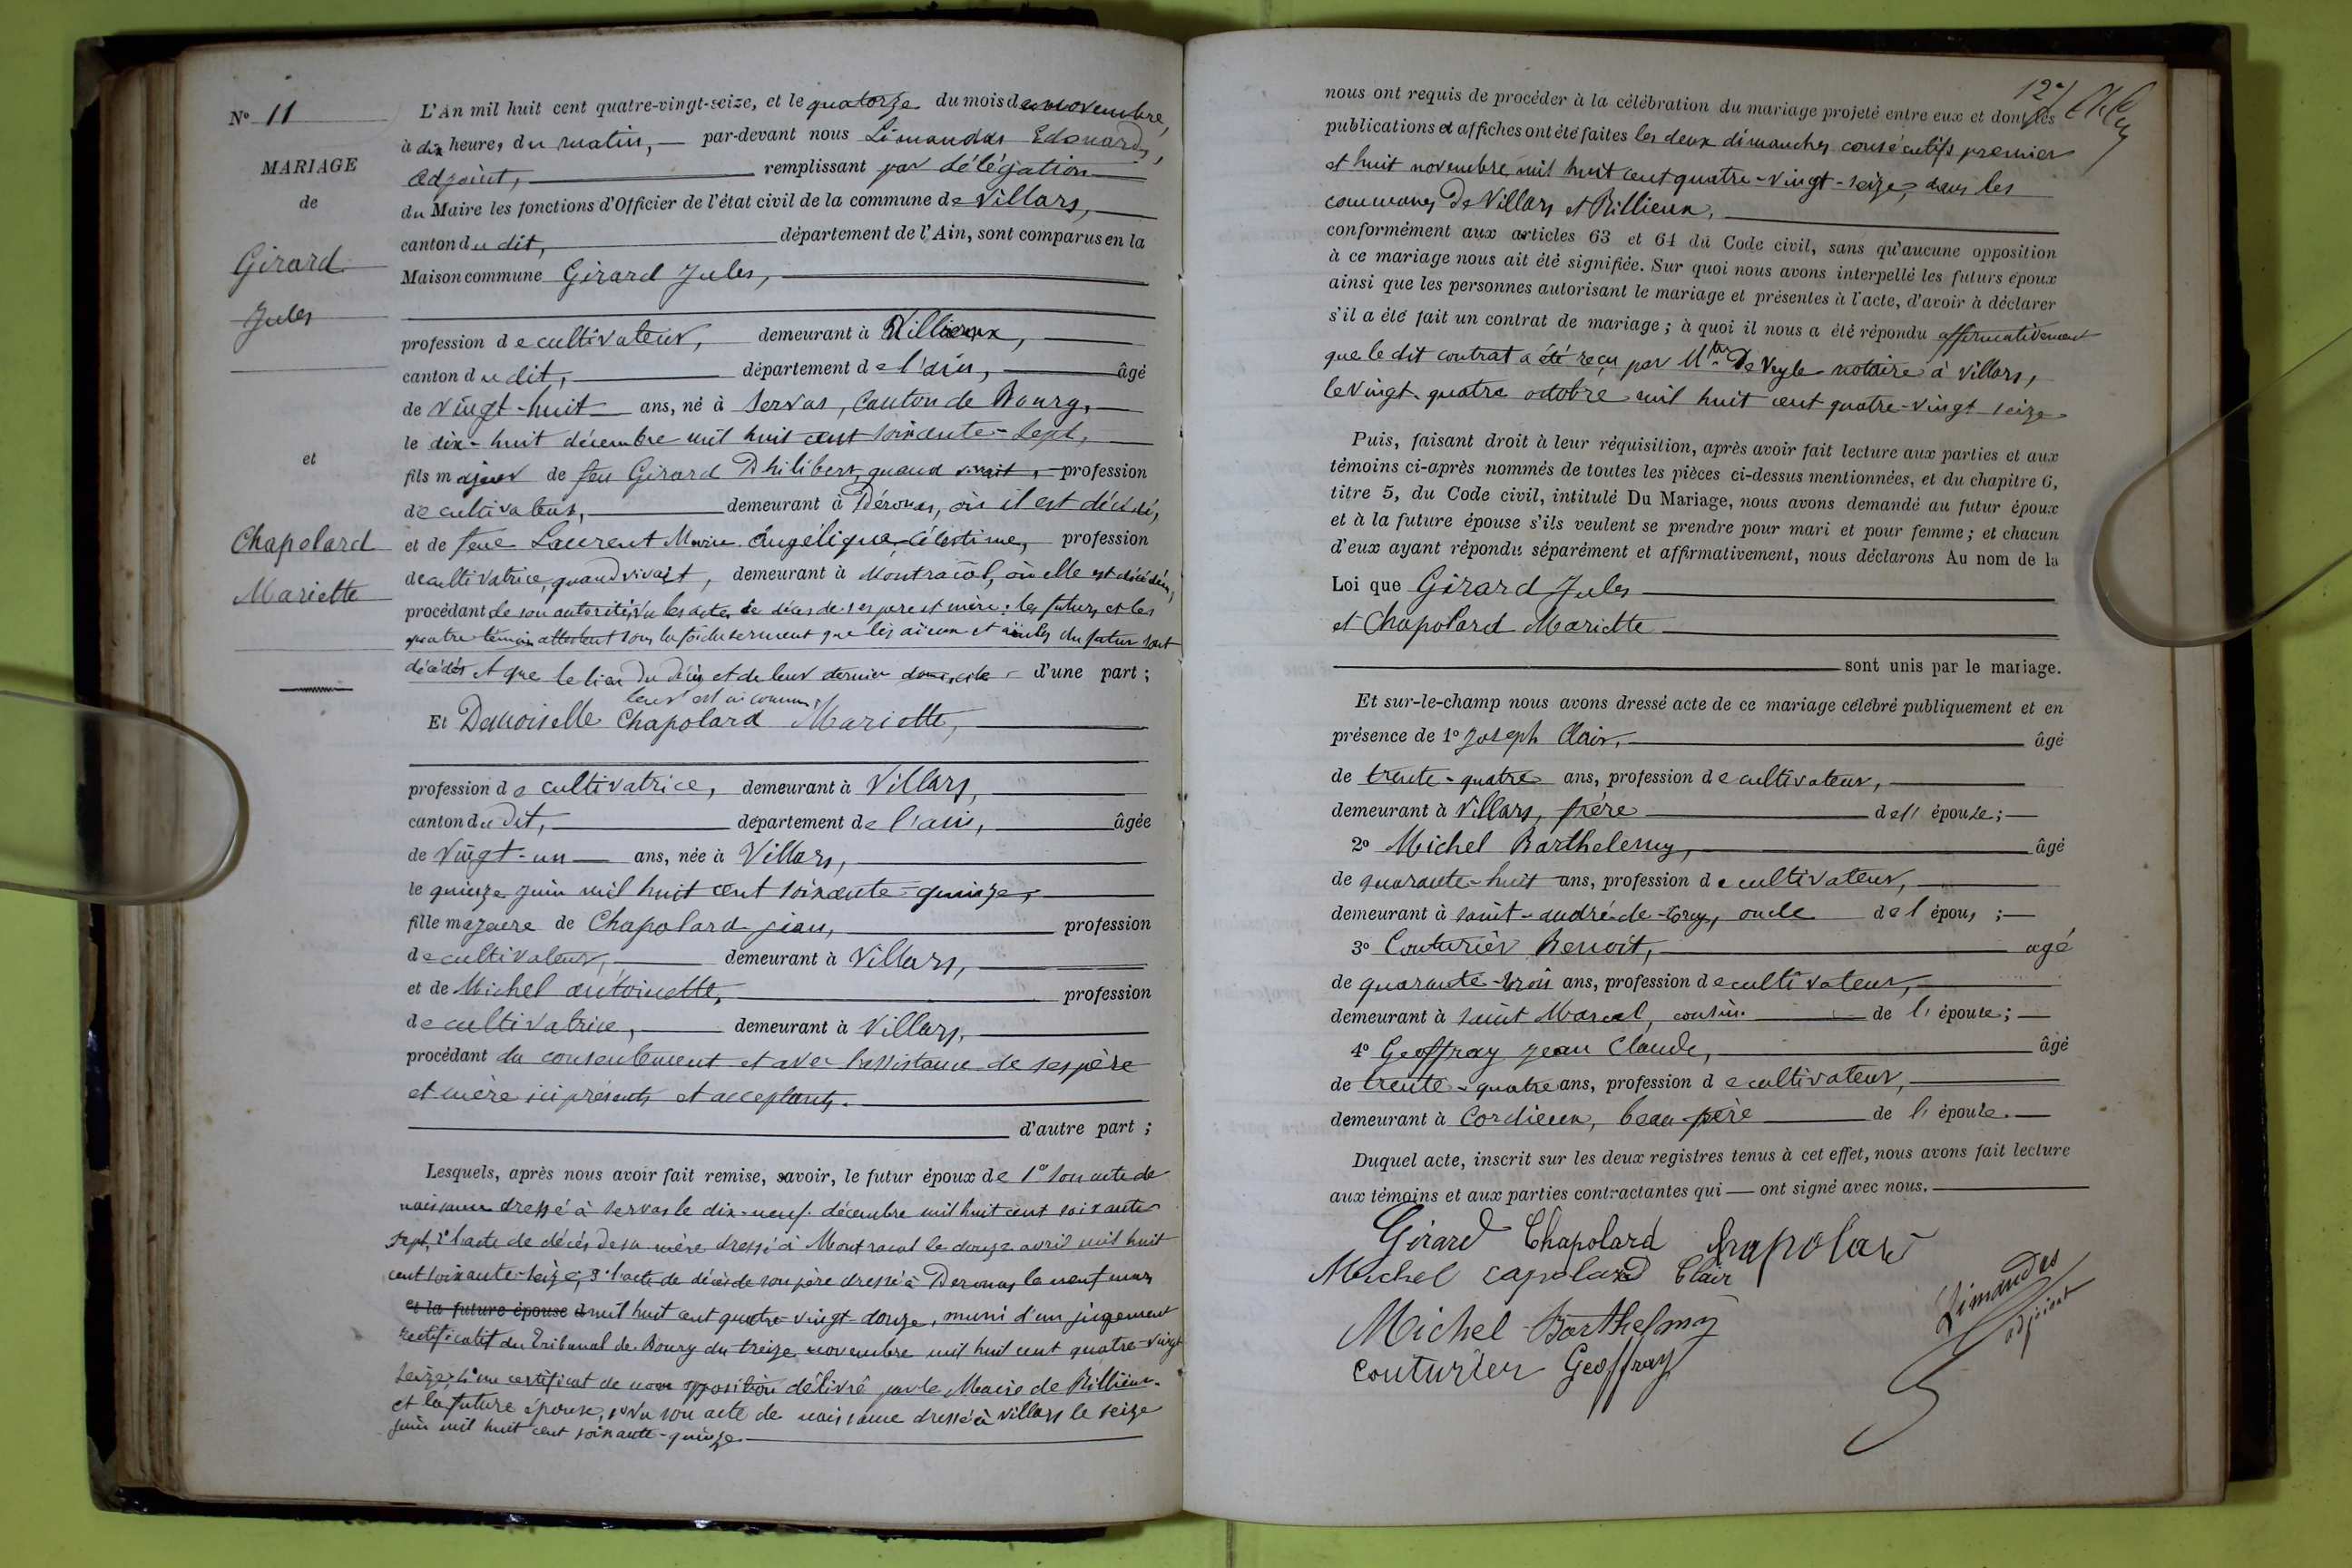 N° 11
MARIAGE
de
Girard
Jules
et
Chapolard
Mariette
L'An mil huit cent quatre-vingt-seize, et le quatorze du mois de novembre,
à dix heures du matin, par-devant nous Limandas Edouard,
adjoint, remplissant par délégation
du Maire les fonctions d'Officier de l'état civil de la commune de Villars,
canton du dit, département de l'Ain, sont comparus en la
Maison commune Girard Jules,
profession de cultivateur, demeurant à Rillieux,
canton du dit, département de l'ain, âgé
de vingt-huit ans, né à Servas, Canton de Bourg,
le dix-huit décembre mil huit cent soixante-sept,
fils majeur de feu Girard Philibert, quand vivait, profession
de cultivateur, demeurant à Péronas, où il est décédé,
et de feue Laurent Marie Angélique Célestine, profession
de cultivatrice, quand vivait, demeurant à Montracol, où elle est décédée,
procédant de son autorité, vu les actes de décès de ses père et mère; les futurs et les
quatre témoins attestent sous la foi du serment que les aïeux et aïeules du futur sont
décédés et que le lieu du décès et de leur dernier domicile d'une part;
leur est inconnu,
Et Demoiselle Chapolard Mariette,
profession de cultivatrice, demeurant à Villars,
canton du dit, département de l'ain, âgée
de vingt-un ans, née à Villars,
le quinze juin mil huit cent soixante-quinze,
fille majeure de Chapolard jean, profession
de cultivateur, demeurant à Villars,
et de Michel antoinette, profession
de cultivatrice, demeurant à Villars,
procédant du consentement et avec l'assistance de ses père
et mère ici présents et acceptants.
d'autre part;
Lesquels, après nous avoir fait remise, savoir, le futur époux de 1° son acte de
naissance dressé à Servas le dix-neuf décembre mil huit cent soixante
sept, 2° l'acte de décès de sa mère dressé à Montracol le douze avril mil huit
cent soixante-seize, 3° l'acte de décès de son père dressé à Peronas le neuf mars
et la future épouse d mil huit cent quatre-vingt-douze, muni d'un jugement
rectificatif du Tribunal de Bourg du treize novembre mil huit cent quatre-vingt
seize, d'un certificat de non opposition délivré par le Maire de Rillieux.
et la future épouse, vu son acte de naissance dressé à Villars le seize
juin mil huit cent soixante-quinze.
nous ont requis de procéder à la célébration du mariage projeté entre eux et dont les
publications et affiches ont été faites les deux dimanches consécutifs premier
et huit novembre mil huit cent quatre-vingt-seize, dans les
communes de Villars et Rillieux,
conformément aux articles 63 et 64 du Code civil, sans qu'aucune opposition
à ce mariage nous ait été signifiée. Sur quoi nous avons interpellé les futurs époux
ainsi que les personnes autorisant le mariage et présentes à l'acte, d'avoir à déclarer
s'il a été fait un contrat de mariage; à quoi il nous a été répondu affirmativement
que le dit contrat a été reçu par Mtre De Veyle notaire à Villars,
le vingt-quatre octobre mil huit cent quatre-vingt seize
Puis, faisant droit à leur réquisition, après avoir fait lecture aux parties et aux
témoins ci-après nommés de toutes les pièces ci-dessus mentionnées, et du chapitre 6,
titre 5, du Code civil, intitulé Du Mariage, nous avons demandé au futur époux
et à la future épouse s'ils veulent se prendre pour mari et pour femme; et chacun
d'eux ayant répondu séparément et affirmativement, nous déclarons Au nom de la
Loi que Girard Jules
et Chapolard Mariette
sont unis par le mariage.
Et sur-le-champ nous avons dressé acte de ce mariage célébré publiquement et en
présence de 1° Joseph Clair, âgé
de trente-quatre ans, profession de cultivateur,
demeurant à Villars, frère de l'épouse;
2° Michel Barthelemy, âgé
de quarante-huit ans, profession de cultivateur,
demeurant à saint-andré-de-Corcy, oncle de l'épous;
3° Couturier Benoit, agé
de quarante-trois ans, profession de cultivateur,
demeurant à saint Marcel, cousin de l'épouse;
4° Geoffray jean Claude, âgé
de trente-quatre ans, profession de cultivateur,
demeurant à Cordieux, beau-frère de l'épouse.
Duquel acte, inscrit sur les deux registres tenus à cet effet, nous avons fait lecture
aux témoins et aux parties contractantes qui ont signé avec nous.
Girard Chapolard Chapolard
Michel Capolard Clair
Limandas
adjoint
Michel Barthelmy
Couturier Geoffray